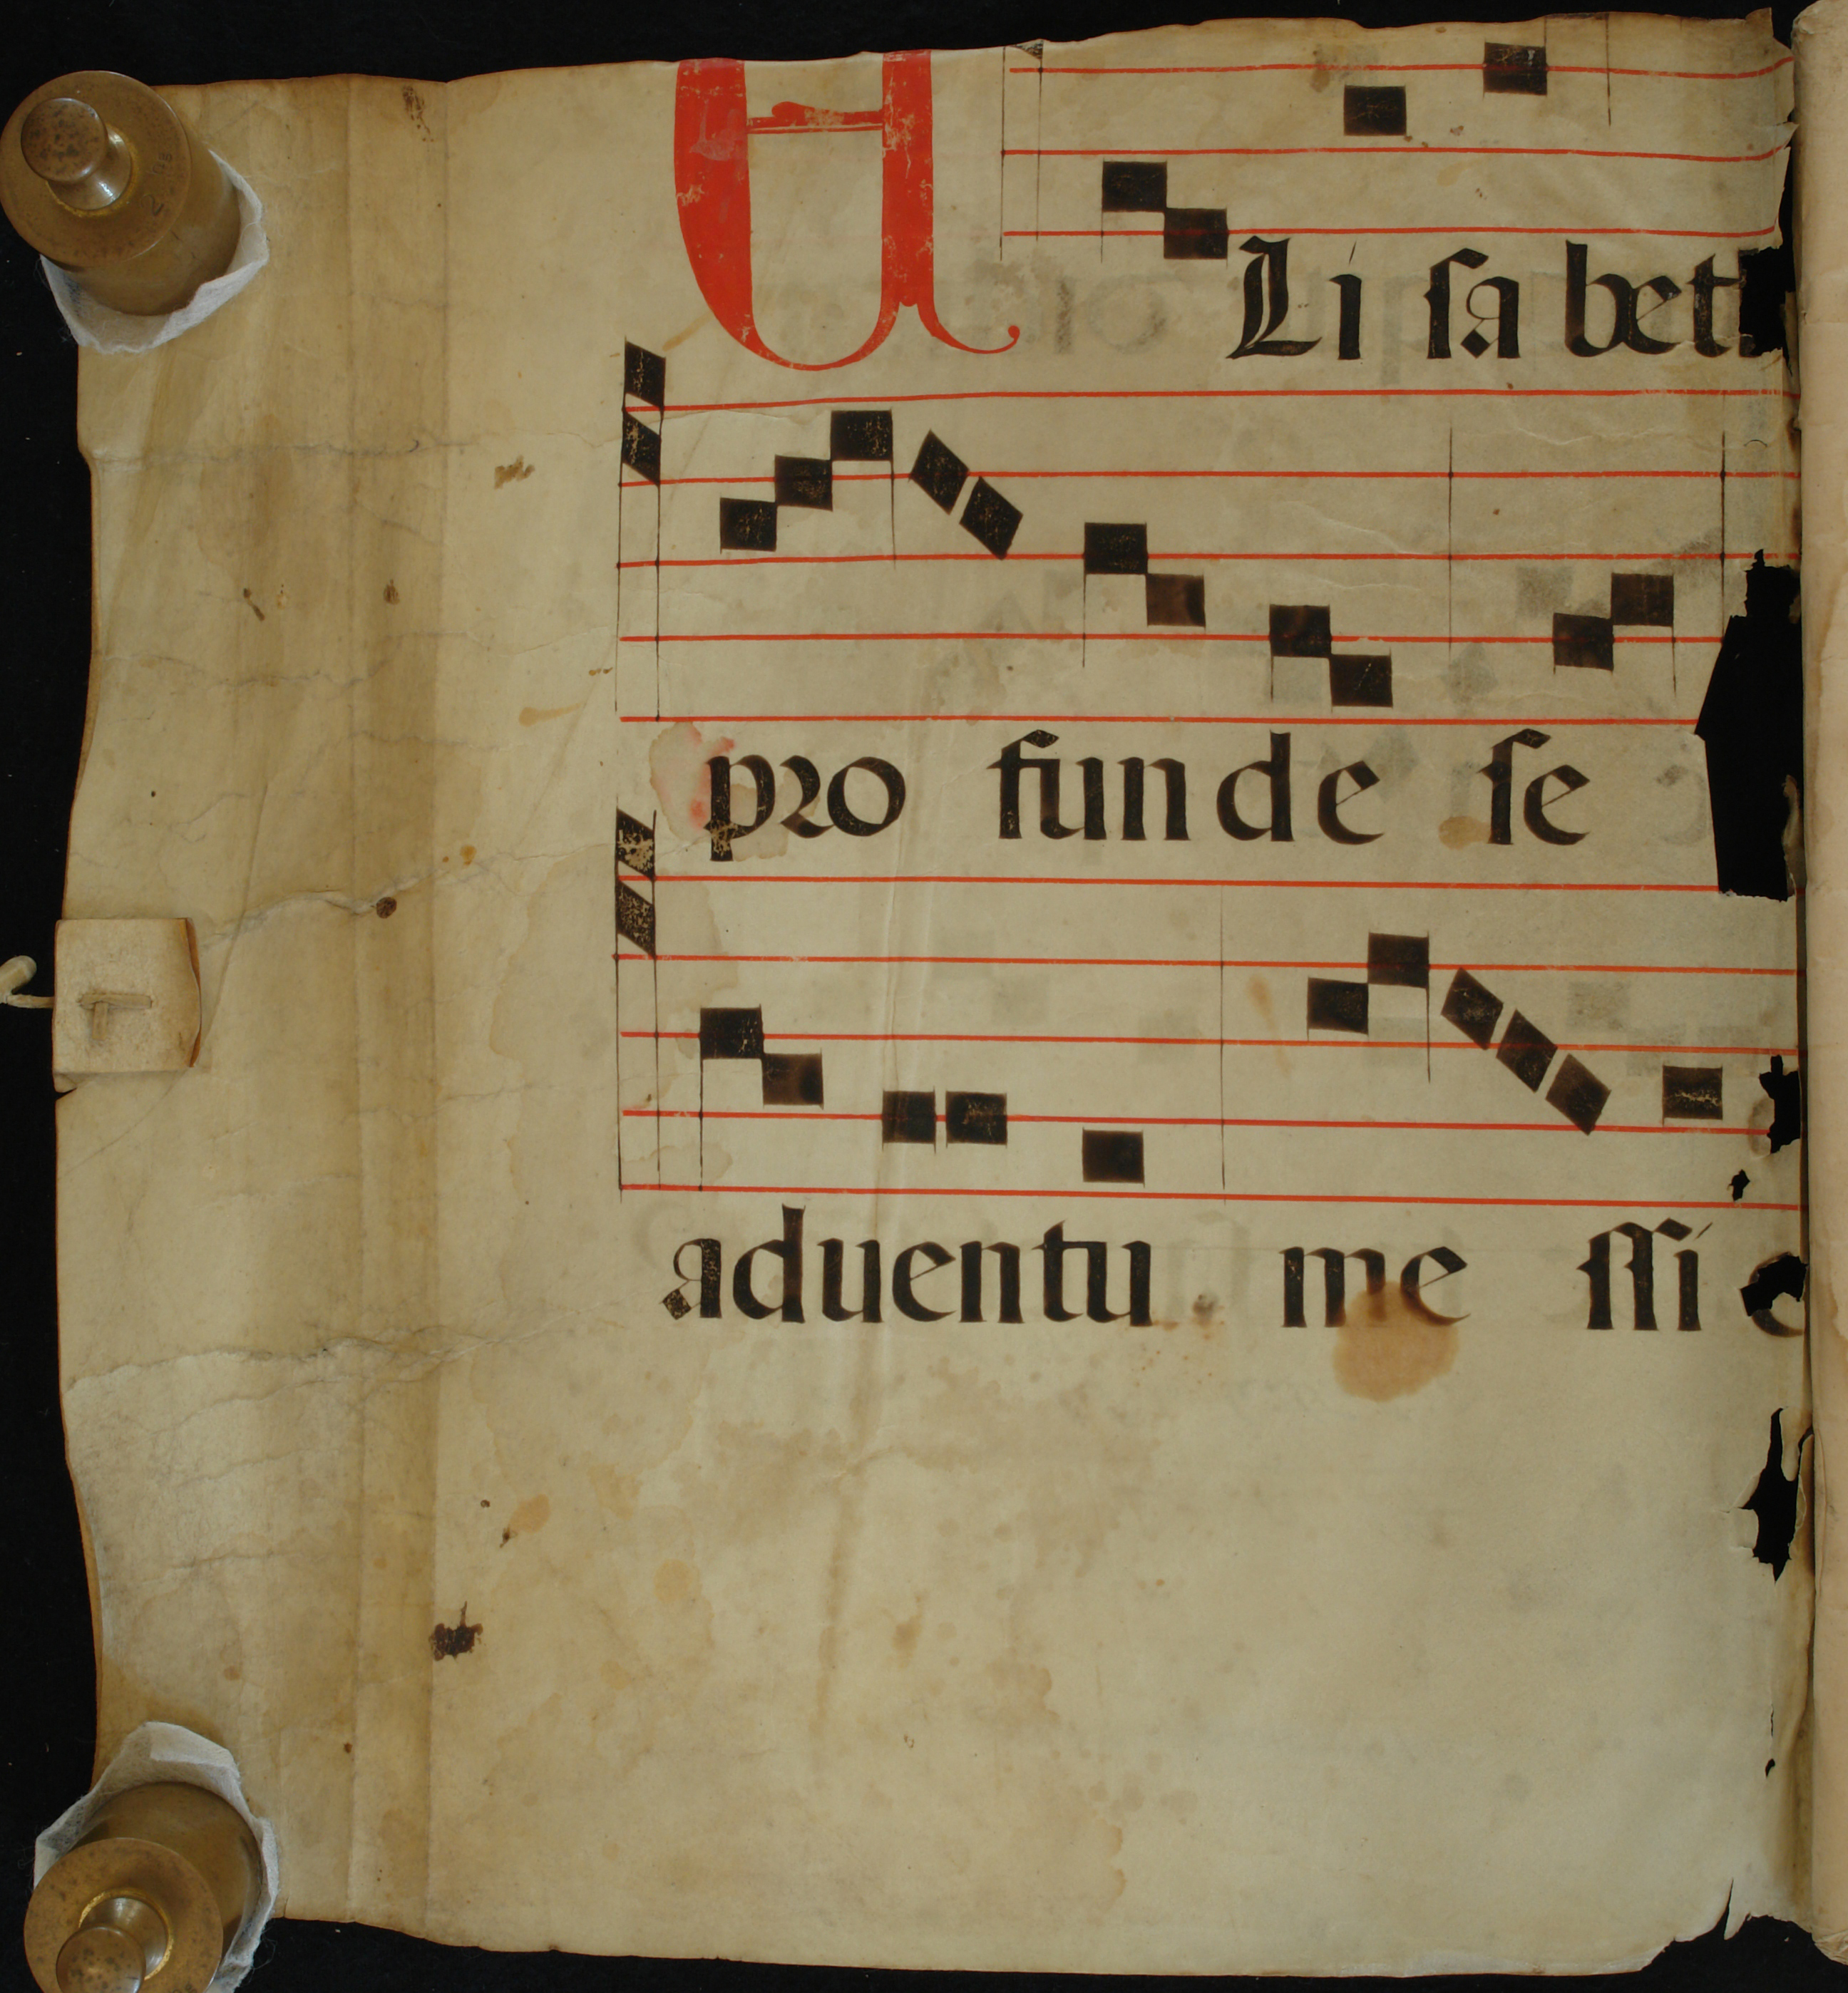 ELi sa bet
pro fun de se
aduentu me ssi